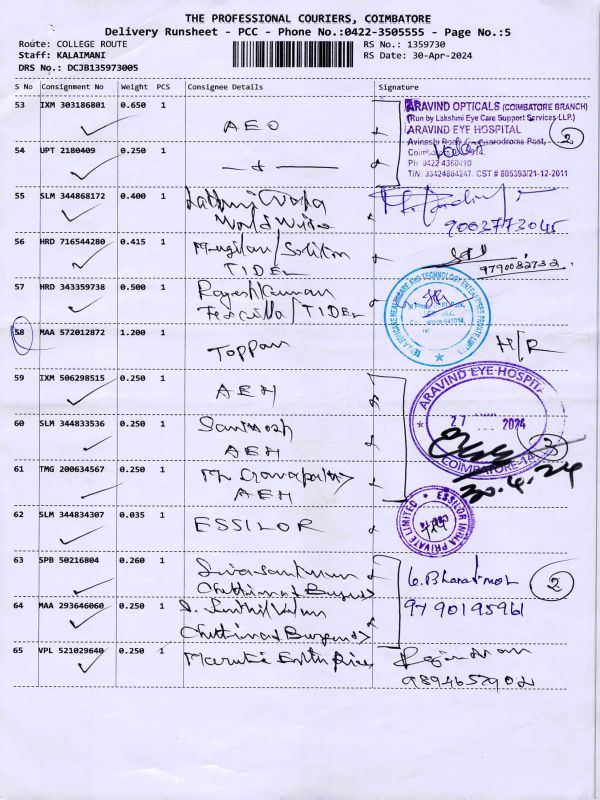 THE PROFESSIONAL COURIERS, COIMBATORE
Delivery Runsheet - PCC - Phone No.:0422-3505555 - Page No.:5
Route: COLLEGE ROUTE
RS No.: 1359730
Staff: KALAIMANI
RS Date: 30-Apr-2024
DRS No.: DCJB135973005
S No Consignment No Weight PCS Consignee Details Signature
53 IXM 303186801 0.650 1
AEO
ARAVIND OPTICALS (COIMBATORE BRANCH)
(Run by Lakshmi Eye Care Support Services LLP.)
ARAVIND EYE HOSPITAL
Avinashi Road, Post,
Ph 0422 4360410
TIN: 33424884247. CST # 805393/21-12-2011
2
54 UPT 2180409 0.250 1
55 SLM 344868172 0.400 1
World Wide
9003773045
56 HRD 716544280 0.415 1
Mugilan/Soliton
TIDEL
9790082732
57 HRD 343359738 0.500 1
Rajesh Kumar
/TIDEL
58 MAA 572012872 1.200 1
Toppan
H/R
59 IXM 506298515 0.250 1
AEH
ARAVIND EYE HOSPITAL
27 2024
COIMBATORE-14
3
30.4.24
60 SLM 344833536 0.250 1
Santhosh
AEH
61 TMG 200634567 0.250 1
AEH
62 SLM 344834307 0.035 1
ESSILOR
ESSILOR INDIA PRIVATE LIMITED
63 SPB 50216804 0.260 1
Sivasankaran
Chettinad
G. Bharathi
2
64 MAA 293646060 0.250 1
Chettinad
9790195961
65 VPL 521029640 0.250 1
Maruthi Enterprises
Rajendran
9894657902